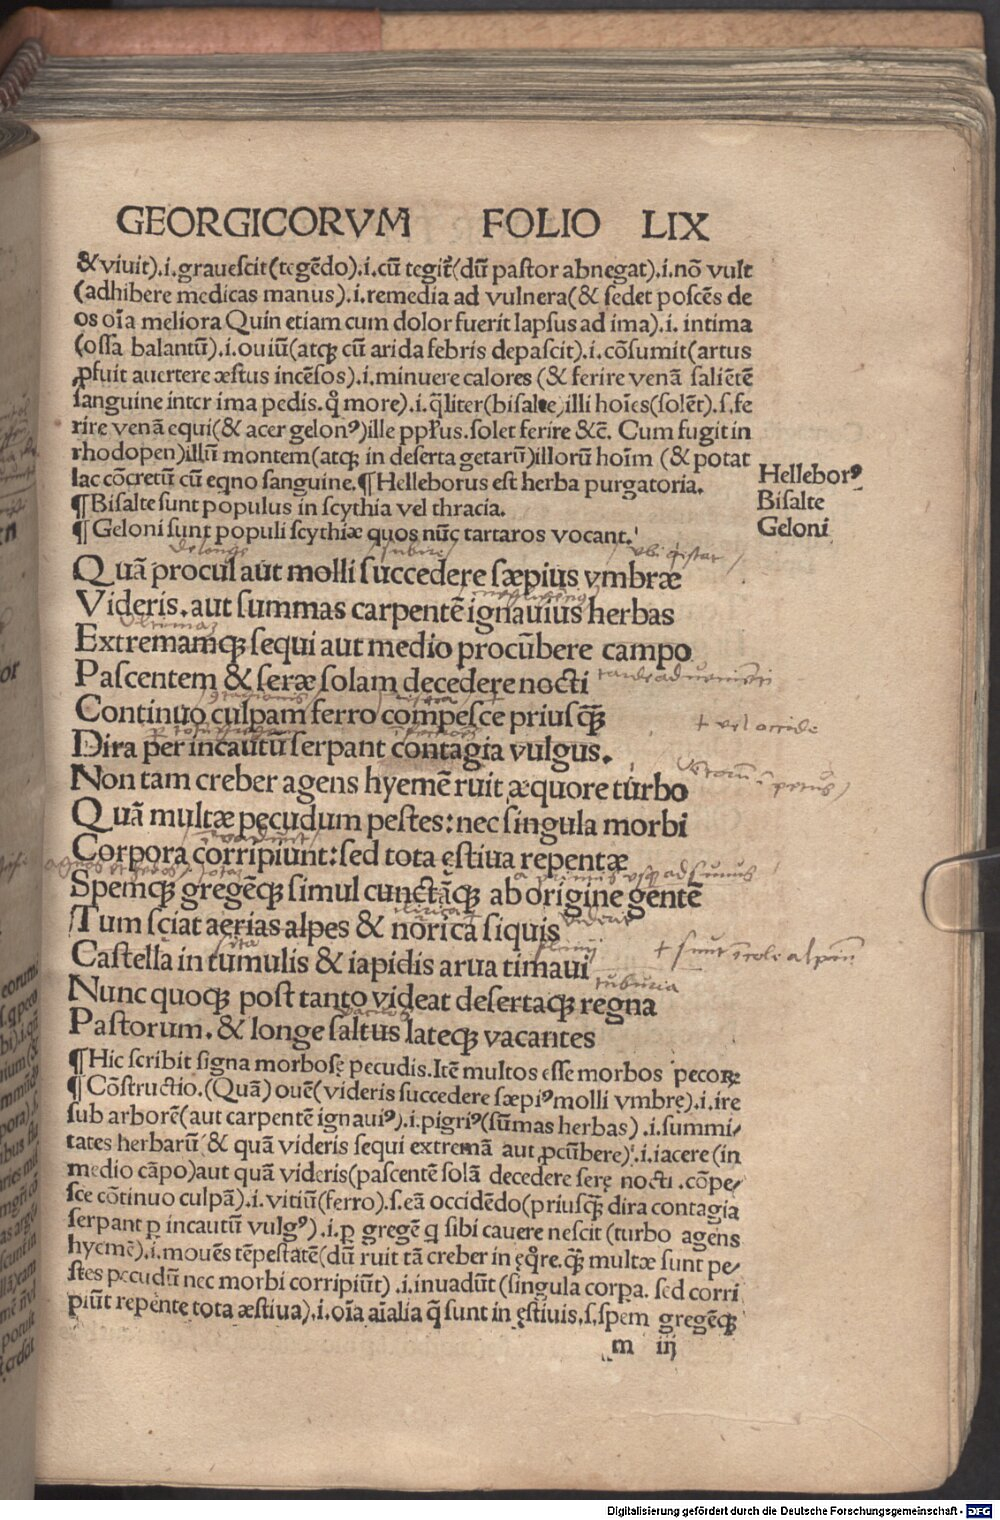 GEORGICORVM FOLIO LIX
& viuit).i.grauescit(tegēdo).i.cū tegit᷑(dū pastor abnegat).i.nō vult
(adhibere medicas manus).i.remedia ad vulnera(& sedet poscēs de
os oīa meliora Quin etiam cum dolor fuerit lapsus ad ima).i. intima
(ossa balantū).i.ouiū(atqꝫ cū arida febris depascit).i.cōsumit(artus
ꝓfuit auertere æstus incēsos).i.minuere calores (& ferire venā saliētē
sanguine inter ima pedis.q̄ more).i.q̄liter(bisalte)illi hoīes(solēt).s.fe
rire venā equi(& acer gelonꝰ)ille ppl̃us.solet ferire &c̄. Cum fugit in
rhodopen)illū montem(atqꝫ in deserta getarū)illorū hoīm (& potat
lac cōcretū cū eqno sanguine.¶Helleborus est herba purgatoria.
Helleborꝰ
¶Bisalte sunt populus in scythia vel thracia.
Bisalte
¶Geloni sunt populi scythiæ quos nūc tartaros vocant.
Geloni
Quā procul aut molli succedere sæpius vmbræ
Videris.aut summas carpentē ignauius herbas
Extremamqꝫ sequi aut medio procūbere campo
Pascentem & seræ solam decedere nocti
Continuo culpam ferro compesce priusq̄ꝫ
+ vel occide
Dira per incautū serpant contagia vulgus.
Non tam creber agens hyemē ruit æquore turbo
Quā multæ pecudum pestes:nec singula morbi
Corpora corripiunt:sed tota estiua repentæ
Spemqꝫ gregēqꝫ simul cunctāqꝫ ab origine gentē
Tum sciat aerias alpes & norica siquis
Castella in tumulis & iapidis arua timaui
Nunc quoqꝫ post tanto videat desertaqꝫ regna
Pastorum.& longe saltus lateqꝫ vacantes
¶Hic scribit signa morbosę pecudis.Itē multos esse morbos pecoꝝ:
¶Cōstructio.(Quā) ouē(videris succedere sæpiꝰ molli vmbrę).i.ire
sub arborē(aut carpentē ignauiꝰ).i.pigriꝰ(sūmas herbas) .i.summi/
tates herbarū(& quā videris sequi extremā aut ꝓcūbere).i.iacere(in
medio cāpo)aut quā videris(pascentē solā decedere serę nocti .cōpe/
sce cōtinuo culpā).i.vitiū(ferro).s.eā occidēdo(priusq̄ꝫ dira contagia
serpant ꝑ incautū vulgꝰ).i.ꝑ gregē q sibi cauere nescit (turbo agens
hyemē).i.mouēs tēpestatē(dū ruit tā creber in ęq̄re.q̄ꝫ multæ sunt pe/
stes pecudū nec morbi corripiūt) .i.inuadūt(singula corpa. sed corri
piūt repente tota æstiua).i.oīa aīalia q̄ sunt in ęstiuis.s.spem gregēqꝫ
m iij
Digitalisierung gefördert durch die Deutsche Forschungsgemeinschaft - DFG